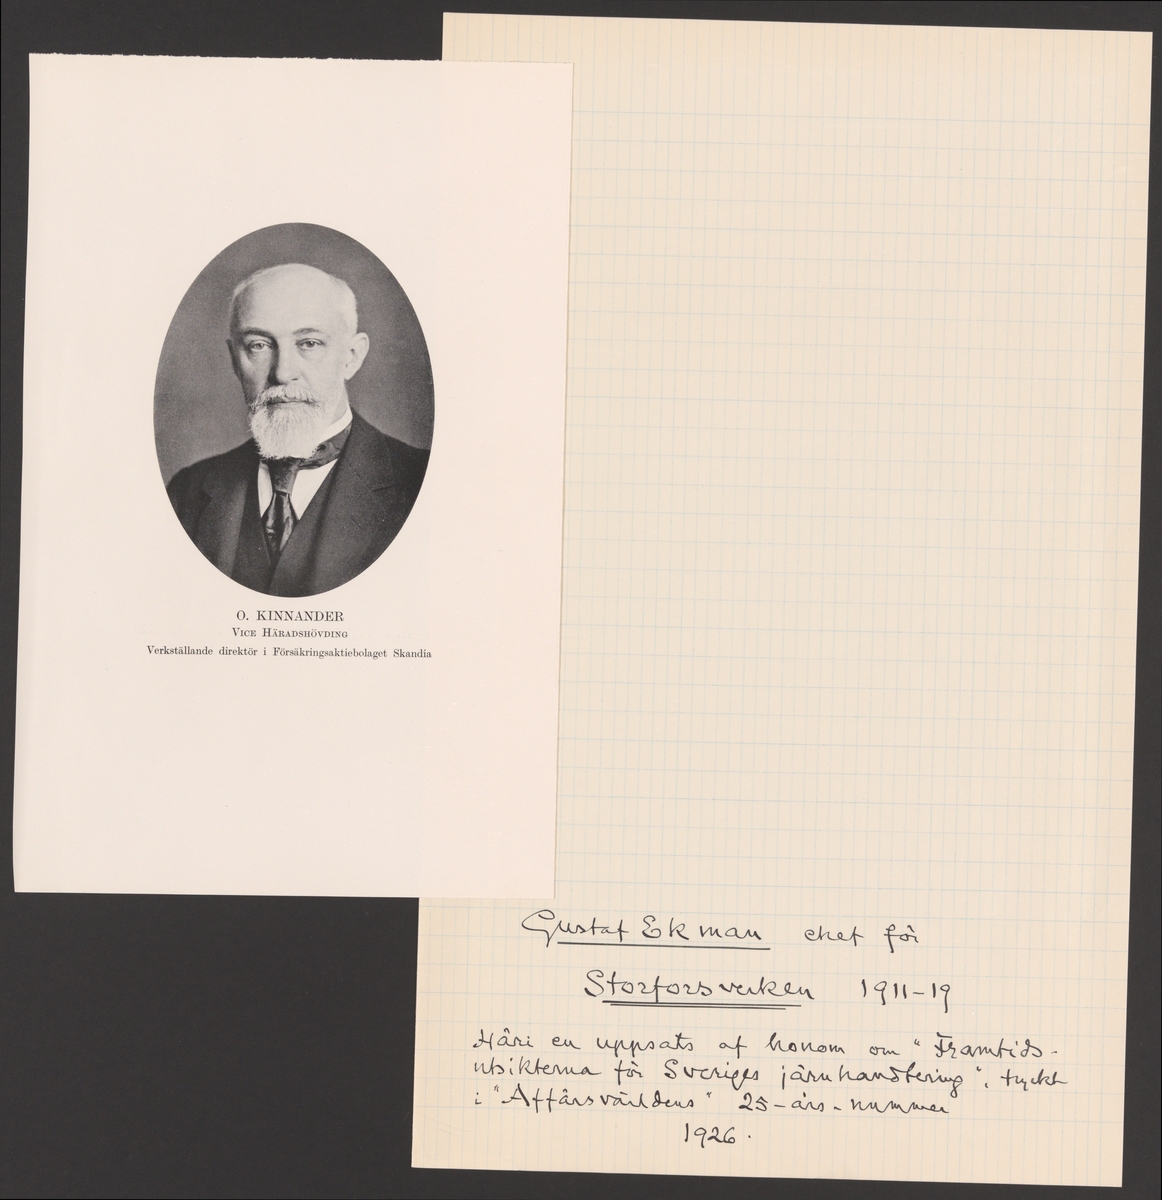 O. KINNANDER
VICE HÄRADSHÖVDING
Verkställande direktör i Försäkringsaktiebolaget Skandia
Gustaf Ekman chef för
Storforsverken 1911-19
Häri en uppsats af honom om "Framtids-
utsikterna för Sveriges järnhandtering", tryckt
i "Affärsvärldens" 25-års-nummer
1926.